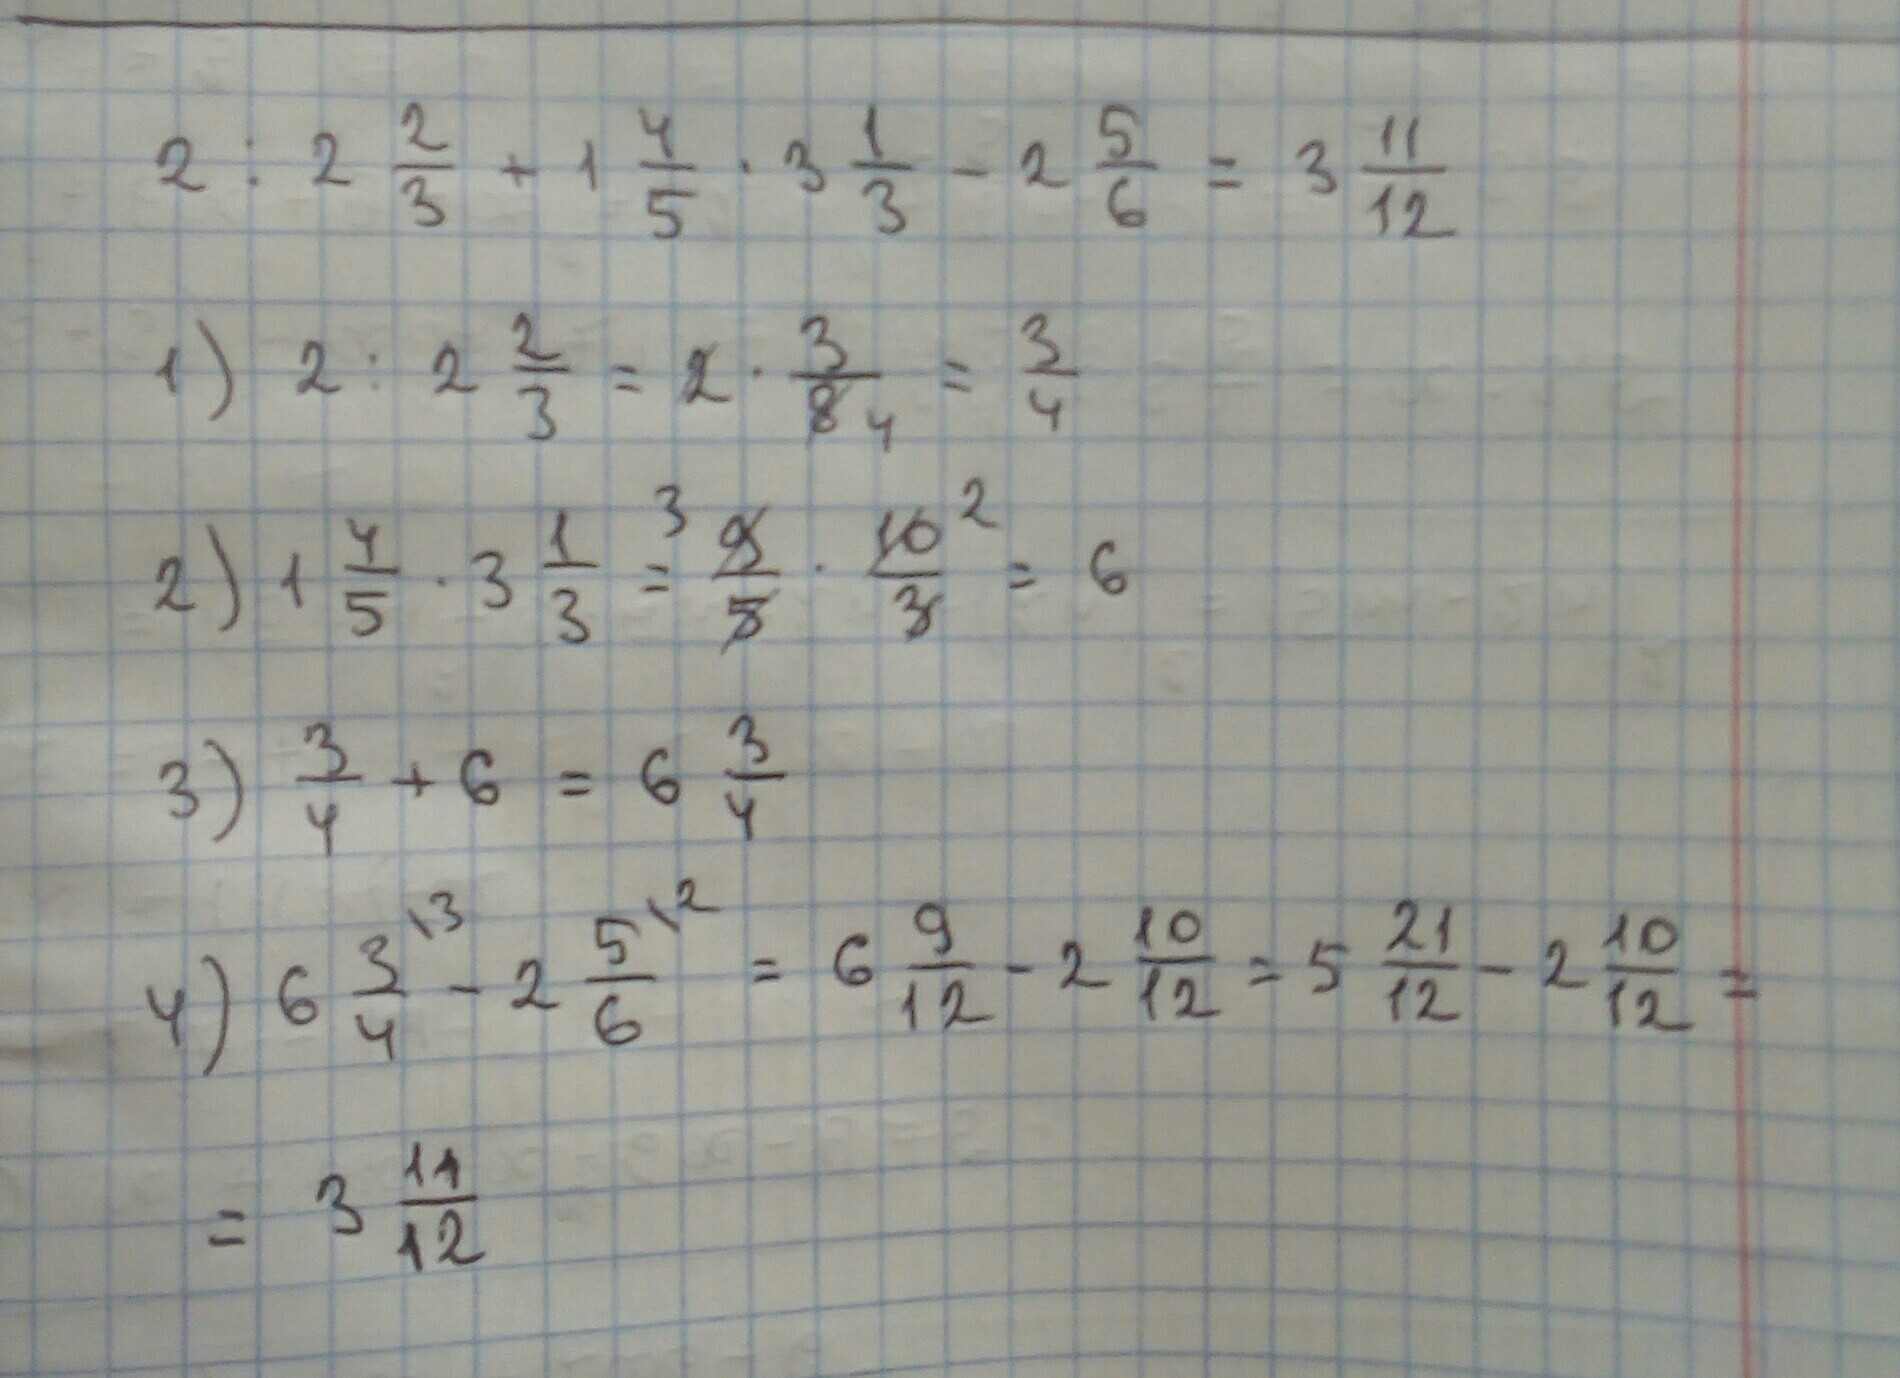 2 : 2 2/3 + 1 4/5 · 3 1/3 - 2 5/6 = 3 11/12
1) 2 : 2 2/3 = 2 · 3/8 4 = 3/4
2) 1 4/5 · 3 1/3 = 3 9/5 · 10/3 2 = 6
3) 3/4 + 6 = 6 3/4
4) 6 3/4 \3 - 2 5/6 \2 = 6 9/12 - 2 10/12 = 5 21/12 - 2 10/12 =
= 3 11/12